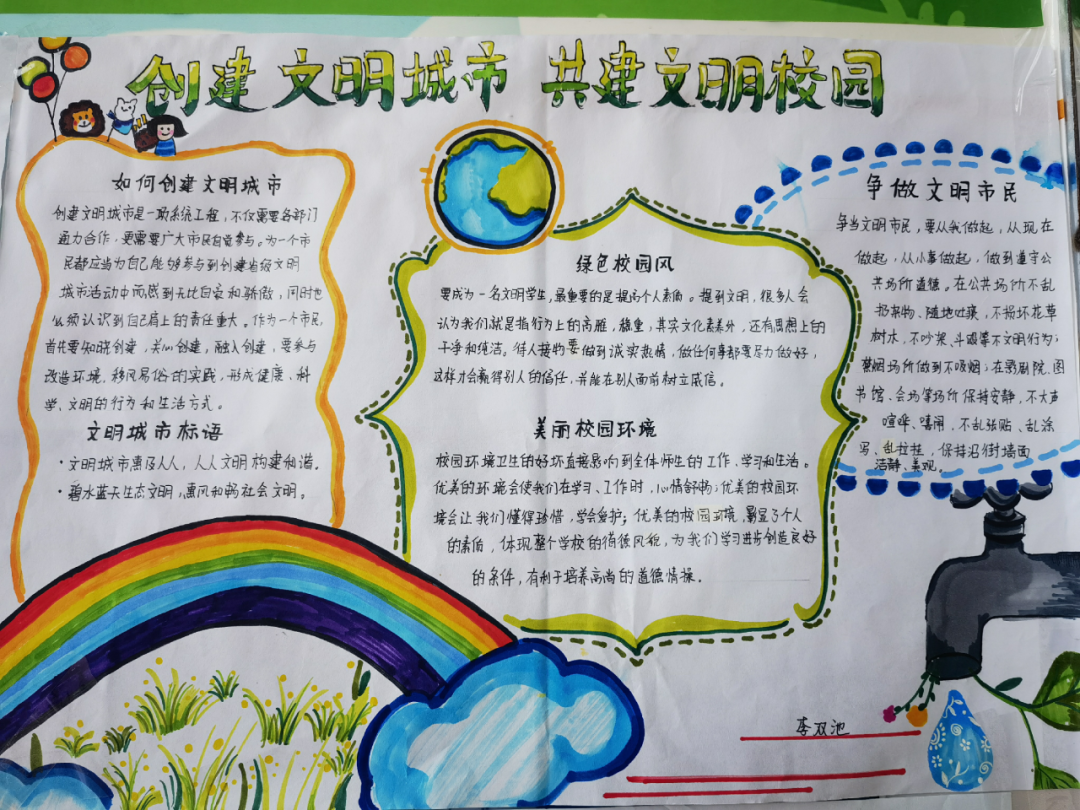 创建文明城市 共建文明校园
如何创建文明城市
创建文明城市是一项系统工程，不仅需要各部门
通力合作，更需要广大市民自觉参与。为一个市
民都应当为自己能够参与到创建省级文明
城市活动中而感到无比自豪和骄傲，同时也
必须认识到自己肩上的责任重大。作为一个市民，
首先要知晓创建，关心创建，融入创建，要参与
改造环境，移风易俗的实践，形成健康、科
学、文明的行为和生活方式。
文明城市标语
·文明城市惠及人人，人人文明构建和谐。
·碧水蓝天生态文明，惠风和畅社会文明。
绿色校园风
要成为一名文明学生，最重要的是提高个人素质。提到文明，很多人会
认为我们就是指行为上的高雅，稳重，其实文化素养外，还有思想上的
干净和纯洁。待人接物要做到诚实热情，做任何事都要尽力做好，
这样才会赢得别人的信任，并能在别人面前树立威信。
美丽校园环境
校园环境卫生的好坏直接影响到全体师生的工作、学习和生活。
优美的环境会使我们在学习、工作时，心情舒畅；优美的校园环
境会让我们懂得珍惜，学会爱护；优美的校园环境，最显了个人
的素质，体现整个学校的道德风貌，为我们学习进步创造良好
的条件，有利于培养高尚的道德情操。
争做文明市民
争当文明市民，要从我做起，从现在
做起，从小事做起，做到遵守公
共场所道德。在公共场所不乱
扔杂物、随地吐痰，不损坏花草
树木，不吵架、斗殴等不文明行为；
禁烟场所做到不吸烟；在影剧院、图
书馆、会场等场所保持安静，不大声
喧哗、嘻闹，不乱张贴、乱涂
写、乱拉挂，保持沿街墙面
洁静、美观。
李双池